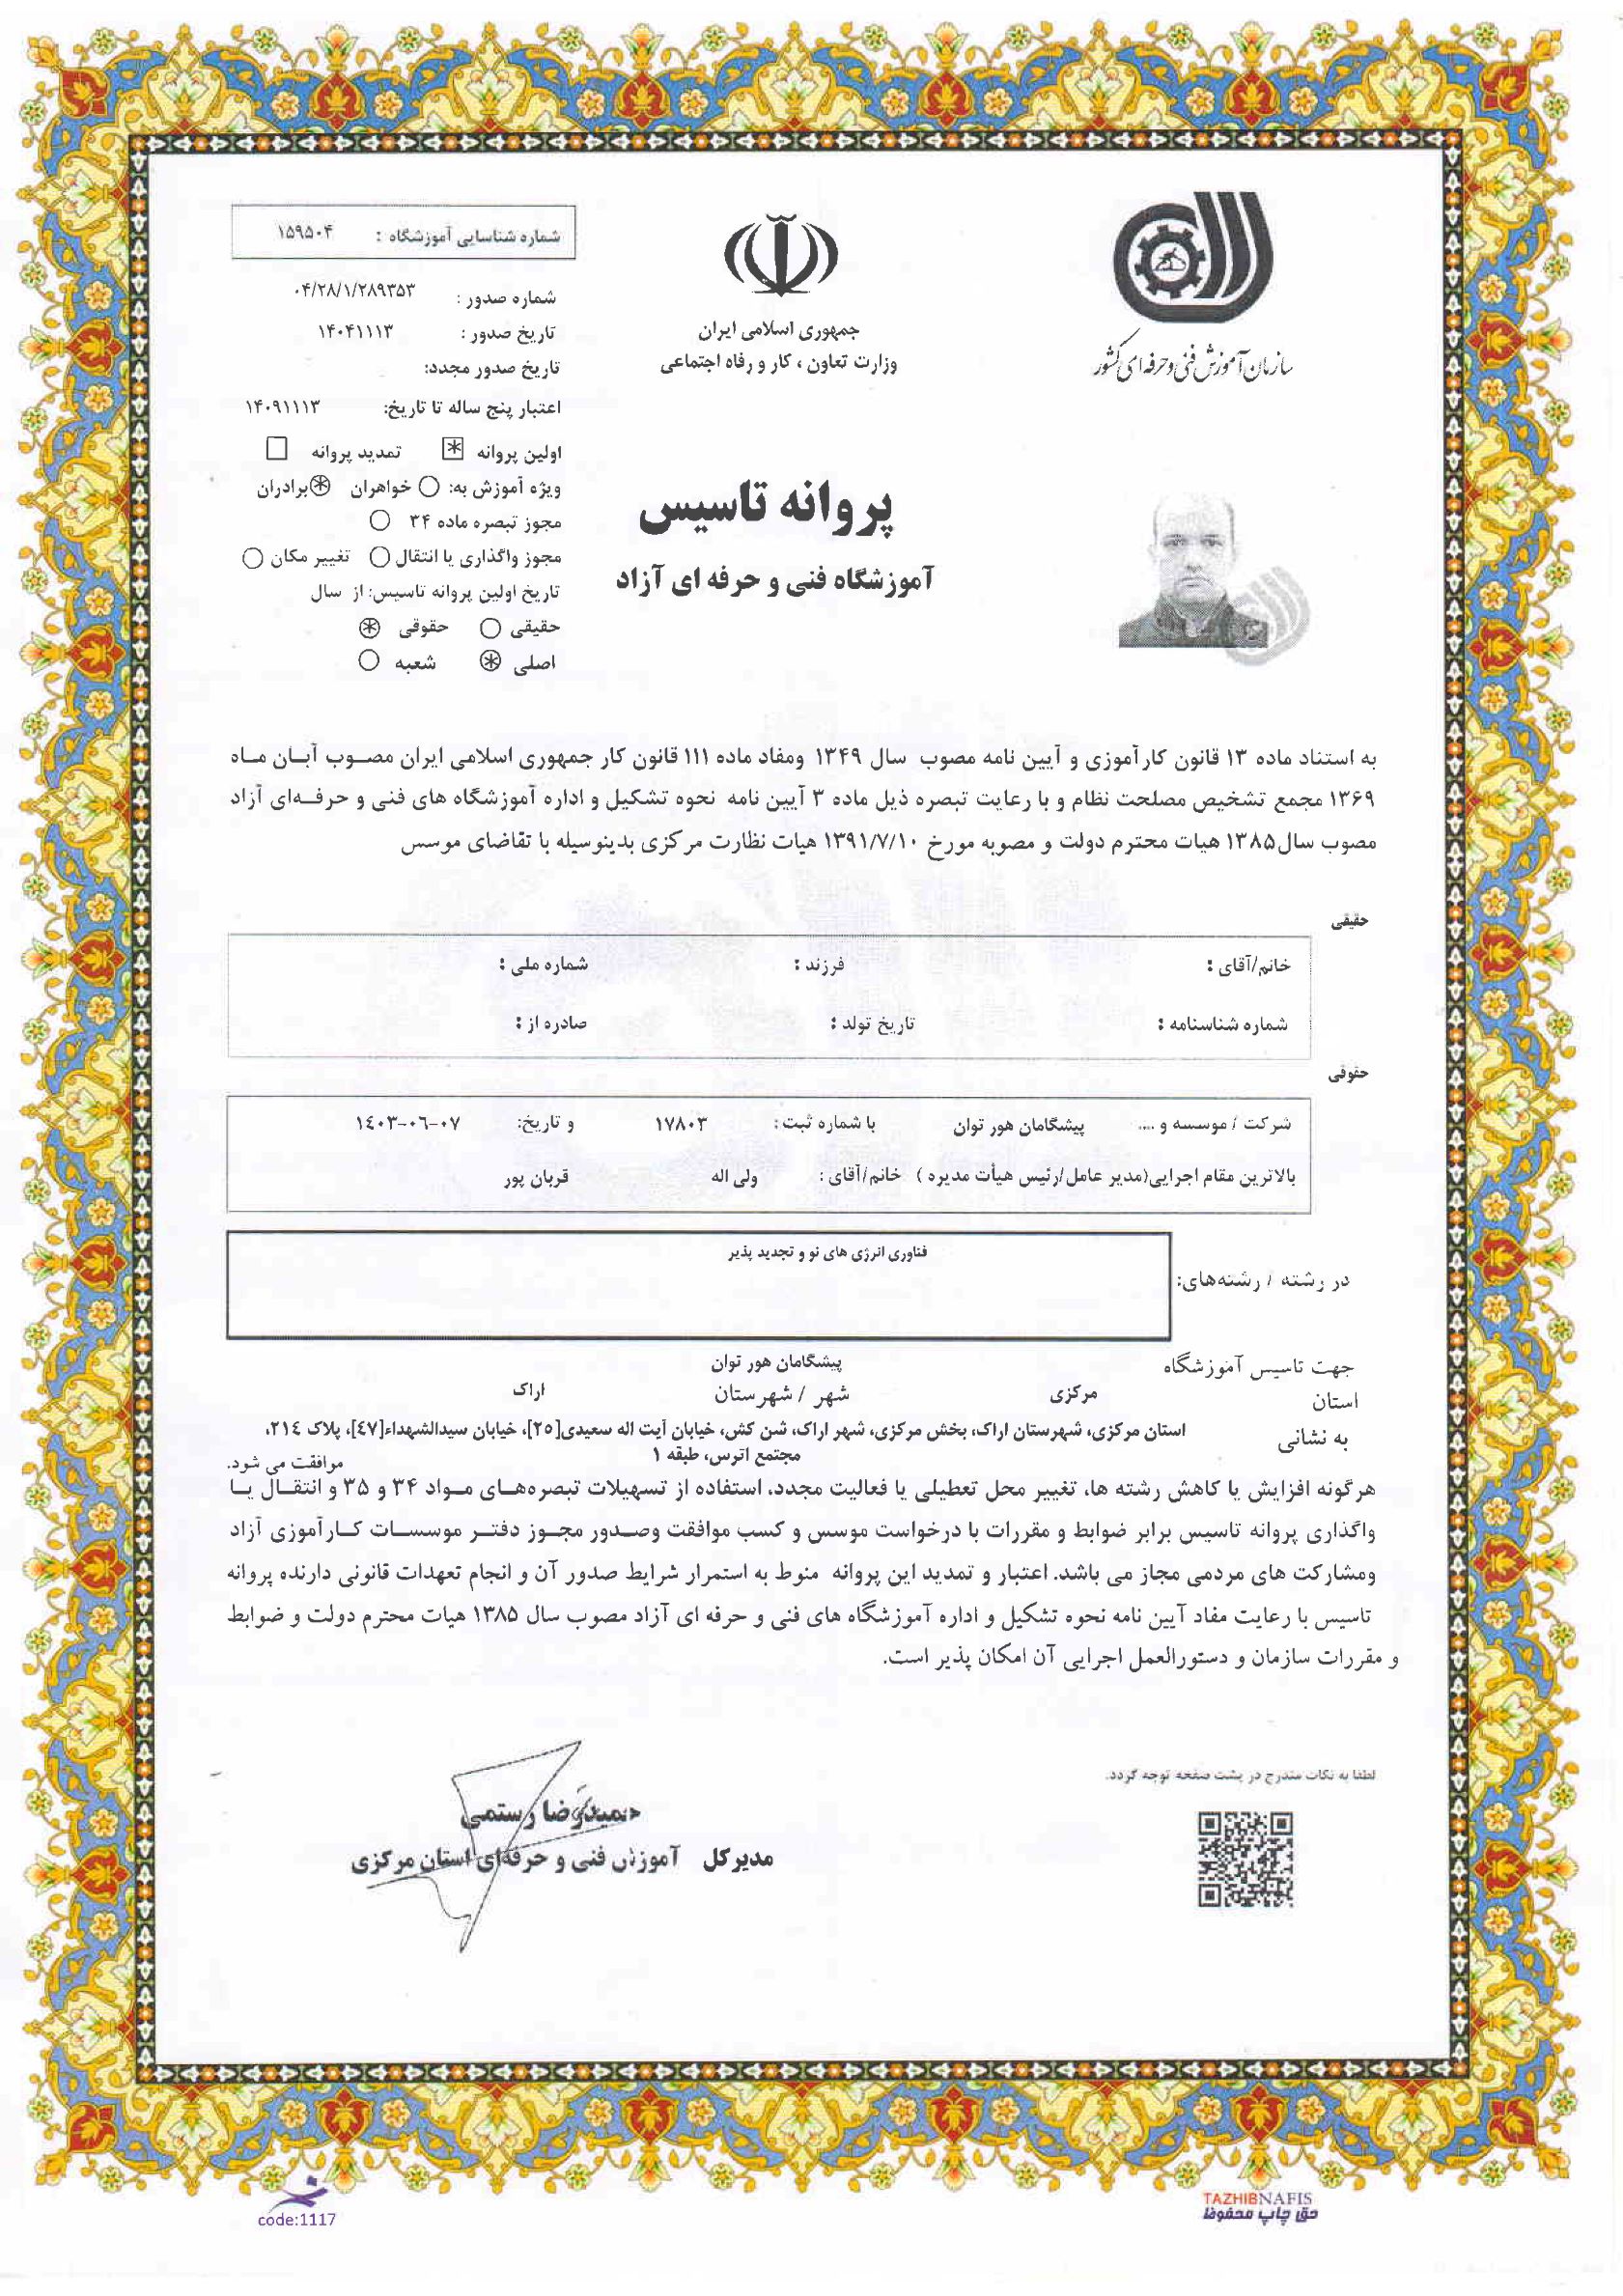 سازمان آموزش فنی و حرفه ای کشور
جمهوری اسلامی ایران
وزارت تعاون ، کار و رفاه اجتماعی
شماره شناسایی آموزشگاه : ۱۵۹۵۰۴
شماره صدور : ۰۴/۲۸/۱/۲۸۹۳۵۳
تاریخ صدور : ۱۴۰۴۱۱۱۳
تاریخ صدور مجدد:
اعتبار پنج ساله تا تاریخ: ۱۴۰۹۱۱۱۳
اولین پروانه تمدید پروانه
ویژه آموزش به: خواهران برادران
مجوز تبصره ماده ۳۴
مجوز واگذاری یا انتقال تغییر مکان
تاریخ اولین پروانه تاسیس: از سال
حقیقی حقوقی
اصلی شعبه
پروانه تاسیس
آموزشگاه فنی و حرفه ای آزاد
به استناد ماده ۱۳ قانون کارآموزی و آیین نامه مصوب سال ۱۳۴۹ ومفاد ماده ۱۱۱ قانون کار جمهوری اسلامی ایران مصـوب آبـان مـاه
۱۳۶۹ مجمع تشخیص مصلحت نظام و با رعایت تبصره ذیل ماده ۳ آیین نامه نحوه تشکیل و اداره آموزشگاه های فنی و حرفـه‌ای آزاد
مصوب سال۱۳۸۵ هیات محترم دولت و مصوبه مورخ ۱۳۹۱/۷/۱۰ هیات نظارت مرکزی بدینوسیله با تقاضای موسس
حقیقی
خانم/آقای : فرزند : شماره ملی :
شماره شناسنامه : تاریخ تولد : صادره از :
حقوقی
شرکت / موسسه و .... پیشگامان هور توان با شماره ثبت : ۱۷۸۰۳ و تاریخ: ۱٤۰۳-۰٦-۰۷
بالاترین مقام اجرایی(مدیر عامل/رئیس هیأت مدیره ) خانم/آقای : ولی اله قربان پور
در رشته / رشته‌های: فناوری انرژی های نو و تجدید پذیر
جهت تاسیس آموزشگاه پیشگامان هور توان
استان مرکزی شهر / شهرستان اراک
به نشانی استان مرکزی، شهرستان اراک، بخش مرکزی، شهر اراک، شن کش، خیابان آیت اله سعیدی[۲۵]، خیابان سیدالشهداء[٤٧]، پلاک ۲۱٤،
مجتمع اترس، طبقه ۱ موافقت می شود.
هرگونه افزایش یا کاهش رشته ها، تغییر محل تعطیلی یا فعالیت مجدد، استفاده از تسهیلات تبصره‌هـای مـواد ۳۴ و ۳۵ و انتقـال یـا
واگذاری پروانه تاسیس برابر ضوابط و مقررات با درخواست موسس و کسب موافقت وصـدور مجـوز دفتـر موسسـات کـارآموزی آزاد
ومشارکت های مردمی مجاز می باشد. اعتبار و تمدید این پروانه منوط به استمرار شرایط صدور آن و انجام تعهدات قانونی دارنده پروانه
تاسیس با رعایت مفاد آیین نامه نحوه تشکیل و اداره آموزشگاه های فنی و حرفه ای آزاد مصوب سال ۱۳۸۵ هیات محترم دولت و ضوابط
و مقررات سازمان و دستورالعمل اجرایی آن امکان پذیر است.
لطفا به نکات مندرج در پشت صفحه توجه گردد.
حمیدرضا رستمی
مدیرکل آموزش فنی و حرفه‌ای استان مرکزی
code:1117
TAZHIBNAFIS
حق چاپ محفوظ